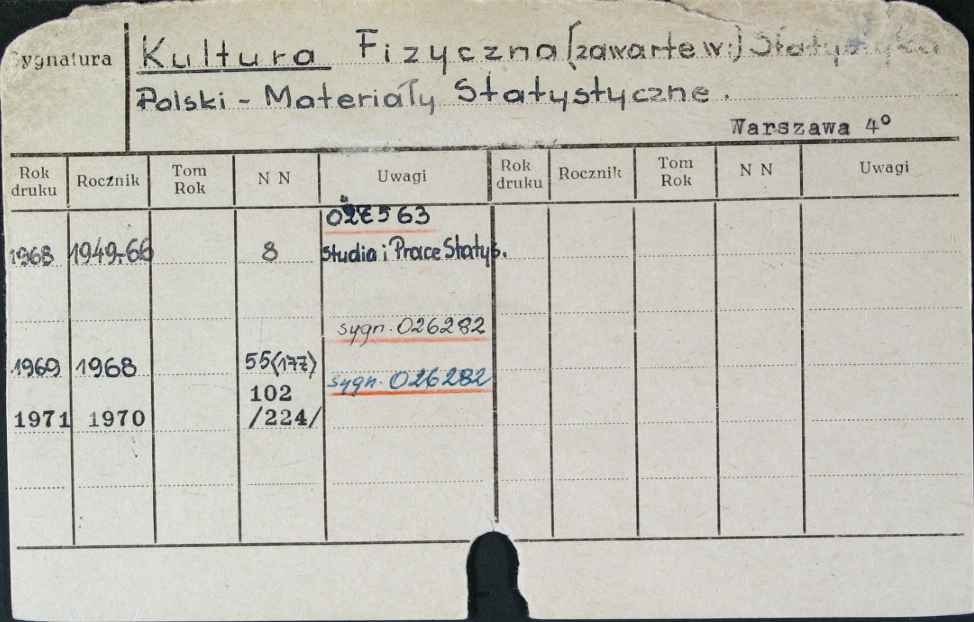 Sygnatura
Kultura Fizyczna (zawarte w:) Statystyka
Polski - Materiały Statystyczne.
Warszawa 4°
Rok druku Rocznik Tom Rok N N Uwagi Rok druku Rocznik Tom Rok N N Uwagi
563
1968 1949-66 8 Studia i Prace Statys.
sygn. 026282
1969 1968 55(177) sygn. 026282
102
1971 1970 /224/